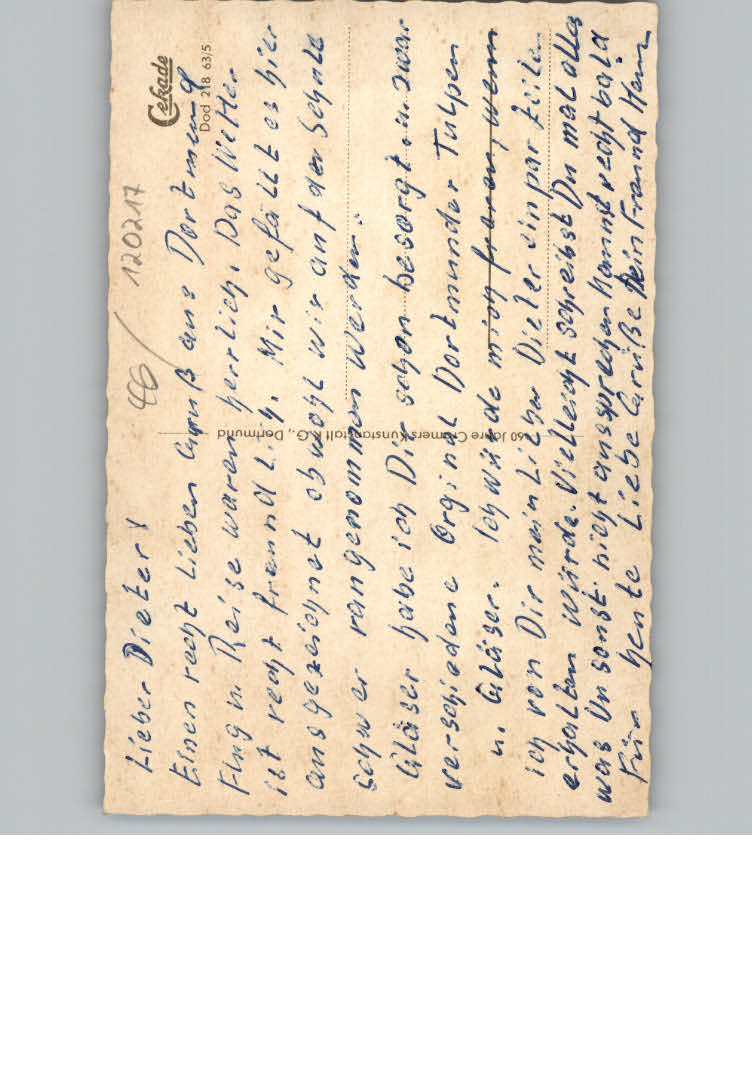 Cekade
Dod 218 63/5
120217
46
60 Jahre Cramers Kunstanstalt K.G., Dortmund
Lieber Dieter!
Einen recht Lieben Gruß aus Dortmund
Flug u. Reise waren herrlich. Das Wetter
ist recht freundlich. Mir gefällt es hier
ausgezeichnet obwohl wir auf der Schule
schwer rangenommen werden.
Gläser habe ich Dir schon besorgt u. zwar
verschiedene Orginal Dortmunder Tulpen
u. Gläser. Ich würde mich freuen, wenn
ich von Dir mein Lieber Dieter ein par Zeilen
erhalten würde. Vielleicht schreibst Du mal alles
was Du sonst nicht aussprechen kannst recht bald
Für heute Liebe Grüße Dein Freund